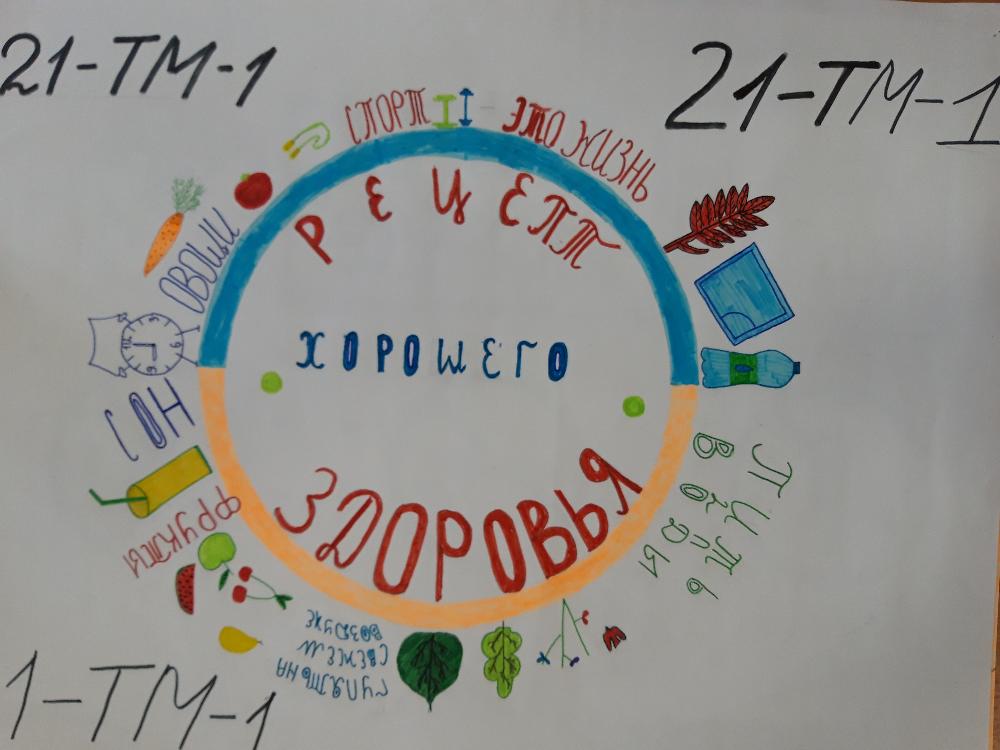 21-ТМ-1
21-ТМ-1
СПОРТ - ЭТО ЖИЗНЬ
РЕЦЕПТ
ХОРОШЕГО
ЗДОРОВЬЯ
ОВОЩИ
СОН
ФРУКТЫ
ГУЛЯТЬ НА
СВЕЖЕМ
ВОЗДУХЕ
ПИТЬ
ВОДЫ
1-ТМ-1